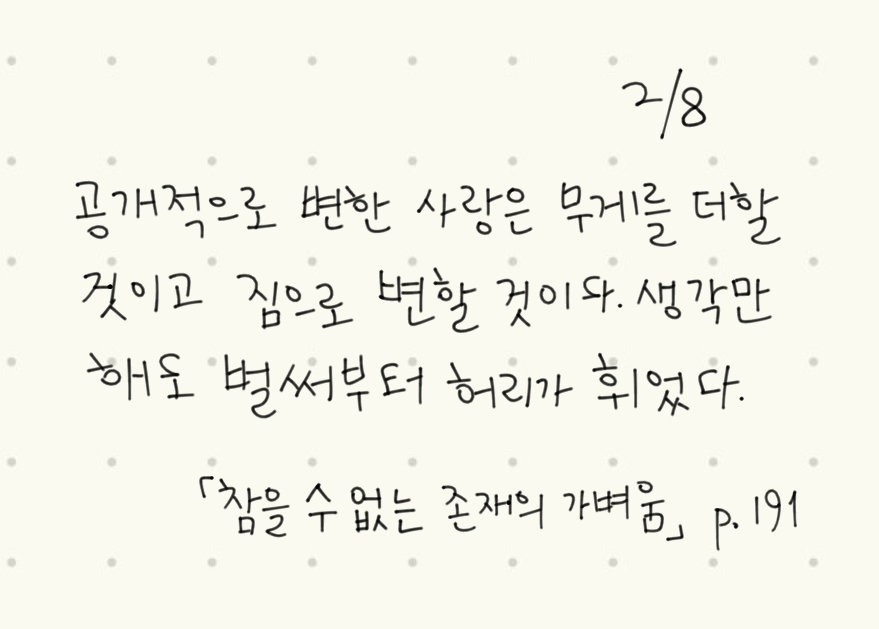 2/8
공개적으로 변한 사랑은 무게를 더할
것이고 짐으로 변할 것이다. 생각만
해도 벌써부터 허리가 휘었다.
「참을 수 없는 존재의 가벼움」 p. 191